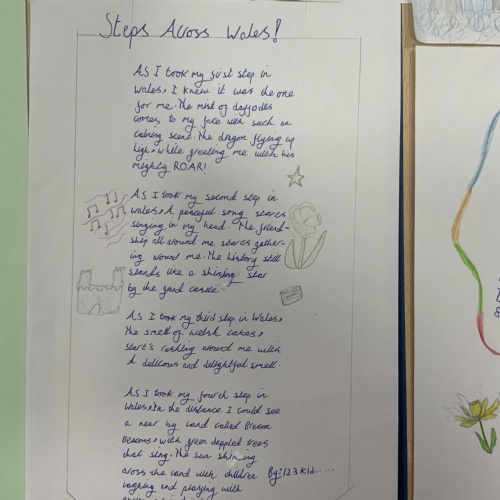 Steps Across Wales!
As I took my first step in
Wales, I knew it was the one
for me. The mist of daffodils
comes to my face with such an
calming scent. The dragon flying up
high, while greeting me with his
mighty ROAR!
As I took my second step in
Wales, A peaceful song starts
singing in my head. The friend-
ship all around me starts gather-
ing around me. The history still
stands like a shining star
by the castle
As I took my third step in Wales,
The smell of welsh cakes,
start's rushing around me with
A delicous and delightful smell.
As I took my fourth step in
Wales, In the distance I could see
a near by land called Brecon
Beacons, with green dappled trees
that sing. The sun shining
across the land with children
laghing and playing with
By: 123 kid.....